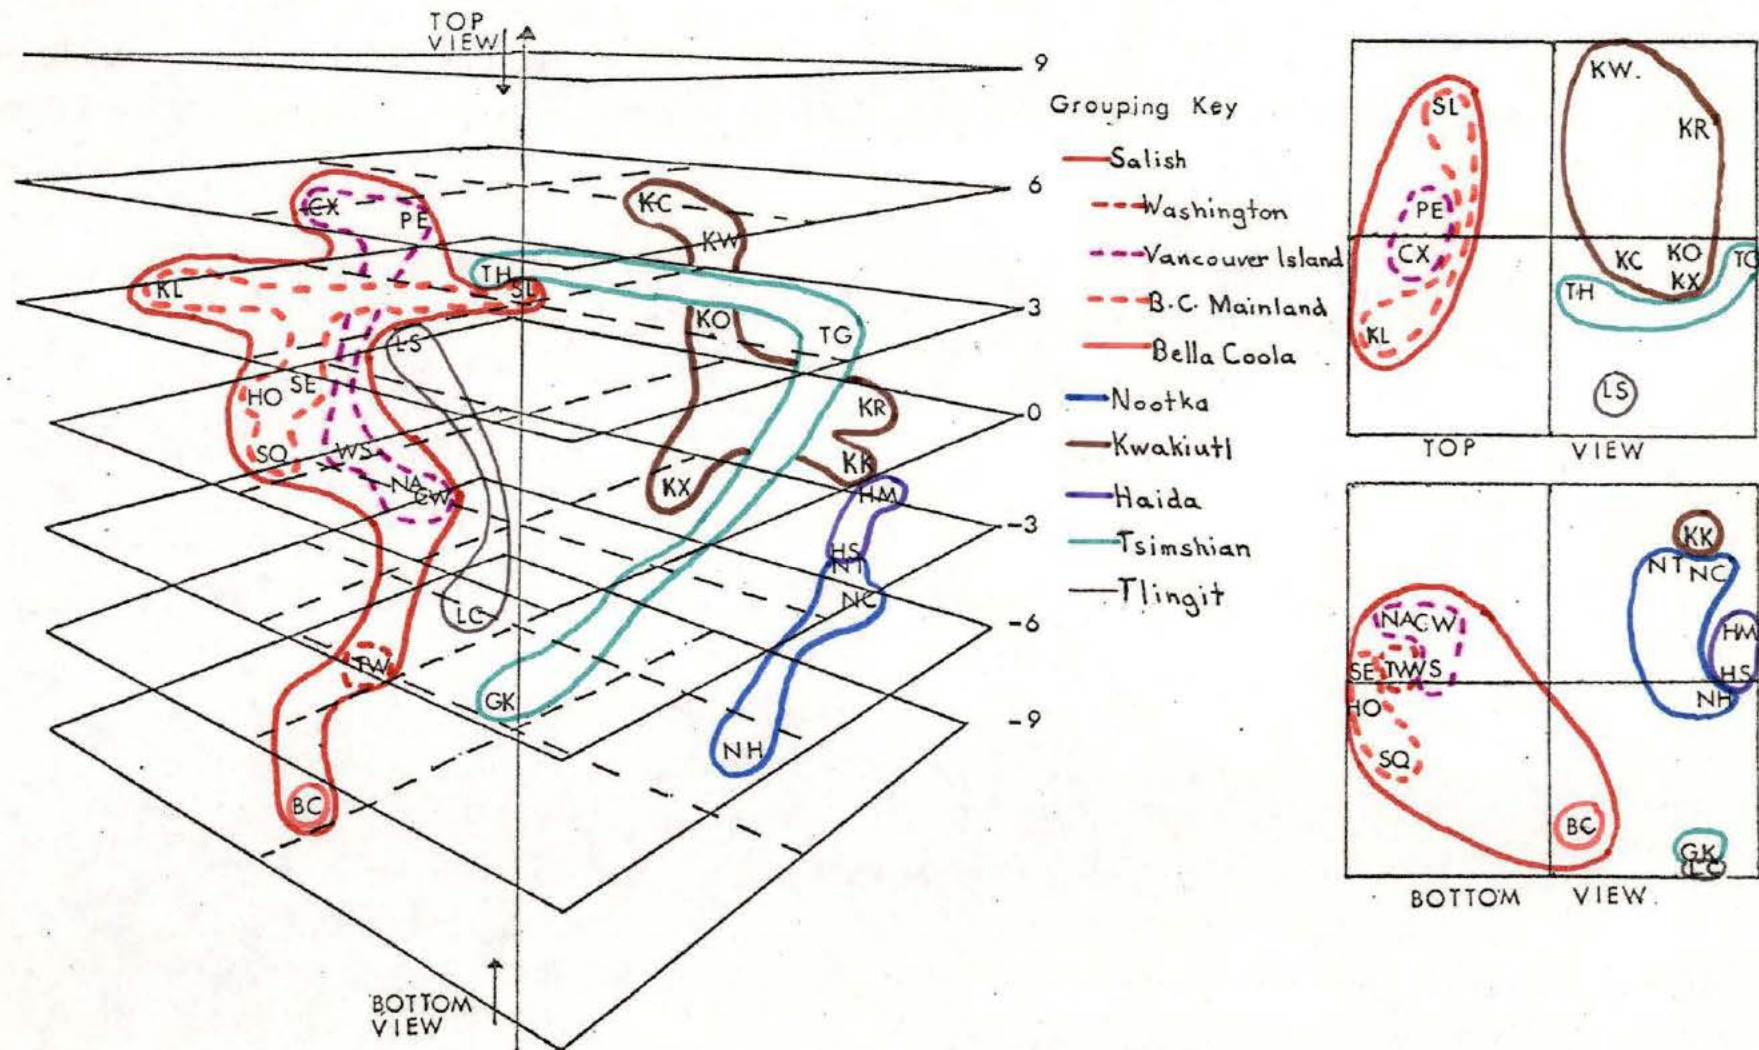 TOP
VIEW
9
6
3
0
-3
-6
-9
CX
PE
KC
KW
KL
TH
SL
KO
TG
LS
HO
SE
KR
SQ
WS
KK
NA
CW
KX
HM
HS
NT
NC
LC
TW
GK
NH
BC
BOTTOM
VIEW
Grouping Key
Salish
Washington
Vancouver Island
B.C. Mainland
Bella Coola
Nootka
Kwakiutl
Haida
Tsimshian
Tlingit
KW.
SL
KR
PE
CX
KC
KO
TG
KX
TH
KL
LS
TOP VIEW
KK
NT
NC
NA
CW
HM
SE
TW
WS
HS
HO
NH
SQ
BC
GK
LC
BOTTOM VIEW.